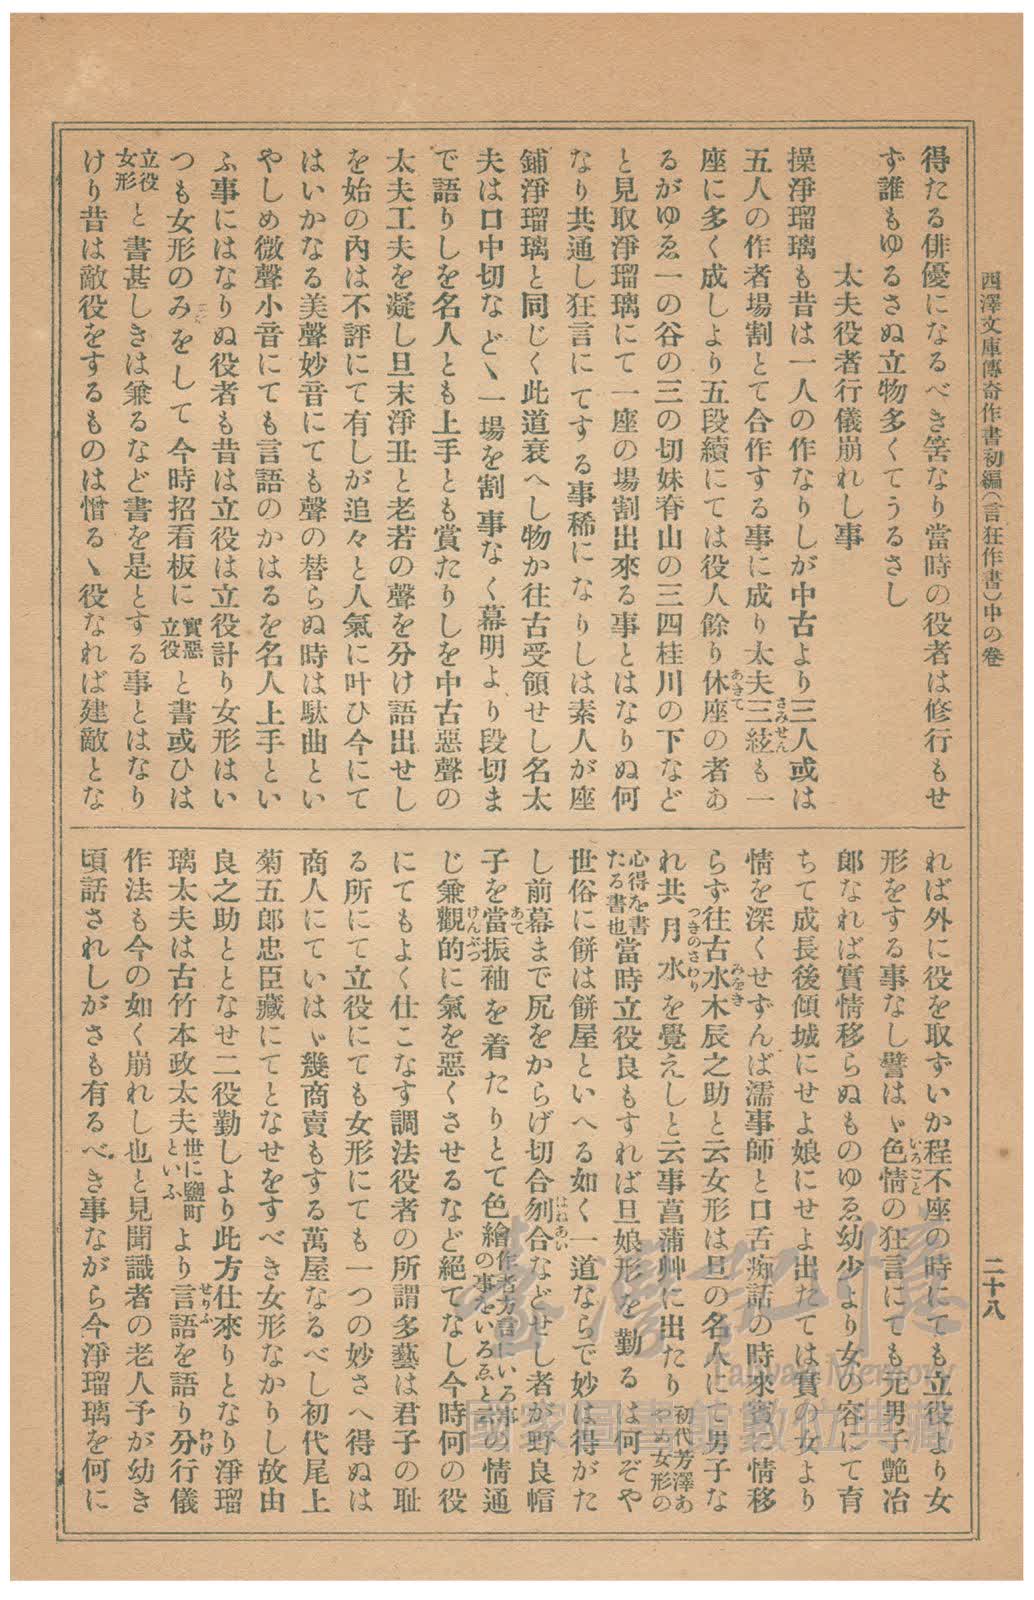 西澤文庫傳奇作書初編(言狂作書)中の卷
二十八
得たる俳優になるべき筈なり當時の役者は修行もせ
ず誰もゆるさぬ立物多くてうるさし
太夫役者行儀崩れし事
操淨瑠璃も昔は一人の作なりしが中古より三人或は
五人の作者場割とて合作する事に成り太夫三絃も一
座に多く成しより五段續にては役人餘り休座の者あ
るがゆゑ一の谷の三の切妹脊山の三四桂川の下など
と見取淨瑠璃にて一座の場割出來る事とはなりぬ何
なり共通し狂言にてする事稀になりしは素人が座
鋪淨瑠璃と同じく此道衰へし物か往古受領せし名太
夫は口中切などゝ一場を割事なく幕明より段切ま
で語りしを名人とも上手とも賞たりしを中古惡聲の
太夫工夫を凝し旦末淨丑と老若の聲を分け語出せし
を始の內は不評にて有しが追々と人氣に叶ひ今にて
はいかなる美聲妙音にても聲の替らぬ時は駄曲とい
やしめ微聲小音にても言語のかはるを名人上手とい
ふ事にはなりぬ役者も昔は立役は立役計り女形はい
つも女形のみをして今時招看板に實惡立役と書或ひは
立役女形と書甚しきは兼るなど書を是とする事とはなり
けり昔は敵役をするものは憎るゝ役なれば建敵とな
れば外に役を取ずいか程不座の時にても立役より女
形をする事なし譬はゞ色情の狂言にても元男子艶冶
郎なれば實情移らぬものゆゑ幼少より女の容にて育
ちて成長後傾城にせよ娘にせよ出たては實の女より
情を深くせずんば濡事師と口舌痴話の時來賓に情移
らず往古水木辰之助と云女形は旦の名人にて男子な
れ共月水を覺えしと云事菖蒲艸に出たり初代芳澤あやめ女形の
心得を書たる書也當時立役良もすれば旦娘形を勤るは何ぞや
世俗に餅は餅屋といへる如く一道ならで妙は得がた
し前幕まで尻をからげ切合刎合などせし者が野良帽
子を當振袖を着たりとて色繪作者方言にいろ事の事をいろゑと云の情通
じ兼觀的に氣を惡くさせるなど絕てなし今時何の役
にてもよく仕こなす調法役者の所謂多藝は君子の耻
る所にて立役にても女形にても一つの妙さへ得ぬは
商人にていはゞ幾商賣もする萬屋なるべし初代尾上
菊五郎忠臣藏にてとなせをすべき女形なかりし故由
良之助ととなせ二役勤しより此方仕來りとなり淨瑠
璃太夫は古竹本政太夫世に鹽町といふより言語を語り分行儀
作法も今の如く崩れし也と見聞識者の老人予が幼き
頃話されしがさも有るべき事ながら今淨瑠璃を何に
臺灣記憶
Taiwan Memory
國家圖書館數位典藏